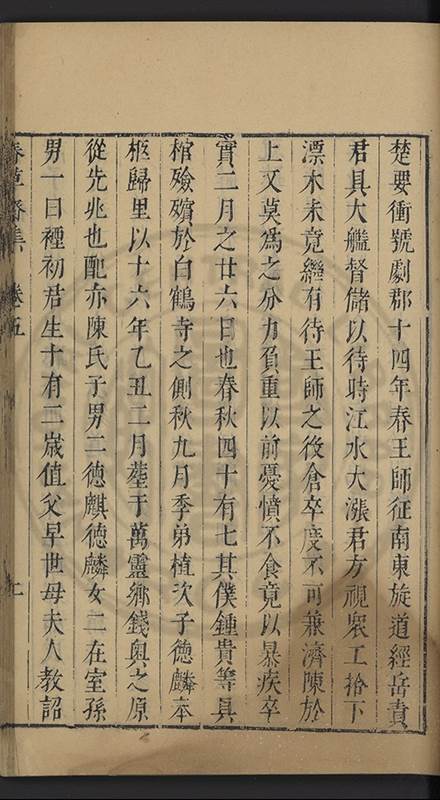 楚要衝號劇郡十四年春王師征南東旋道經岳責
君具大艦督儲以待時江水大漲君方視衆工拾下
漂木未竟繼有待王師之役倉卒度不可兼濟陳於
上又莫為之分力負重以前憂憤不食竟以暴疾卒
實二月之廿六日也春秋四十有七其僕鍾貴等具
棺殮殯於白鶴寺之側秋九月季弟植次子德麟奉
柩歸里以十六年乙丑二月塟于萬靈鄉錢奥之原
從先兆也配亦陳氏子男二德麒德麟女二在室孫
男一曰禋初君生十有二歲值父早世母夫人教詔
春草齋集 卷五